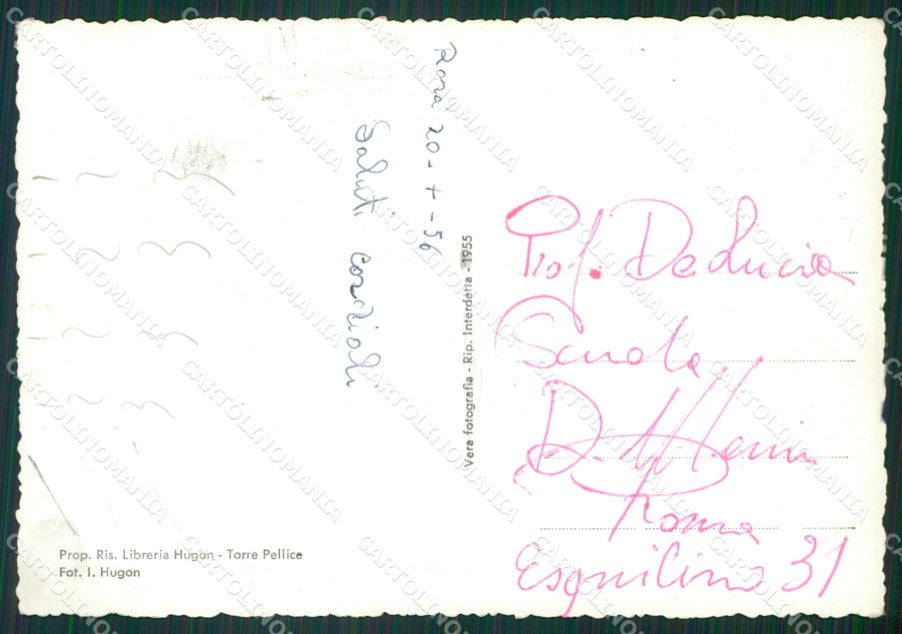 20-
-56
Saluti cordiali
Vera fotografia - Rip. Interdetta - 1955
Prof. De Lucia
Scuola
D.
Roma
Esquilino 31
Prop. Ris. Libreria Hugon - Torre Pellice
Fot. I. Hugon
CARTOLINOMANIA